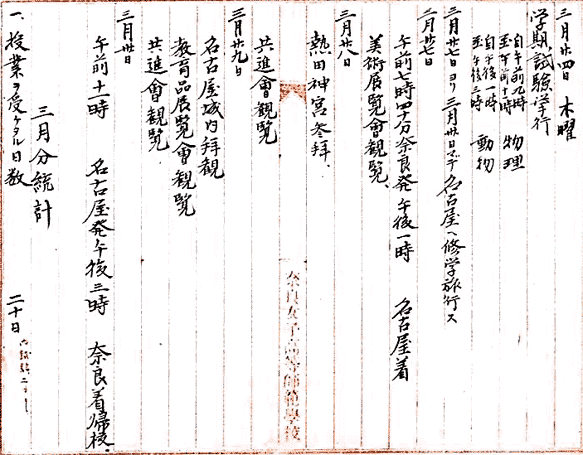 三月廿四日　木曜
学期試験挙行
自午前九時
至午前十一時　物理
自午後一時
至午後三時　動物
三月廿七日ヨリ三月卅日マデ名古屋ヘ修学旅行ス
三月廿七日
午前七時四十分奈良発午後一時　名古屋着
美術展覧會観覧、
三月廿八日
熱田神宮参拝、
奈良女子高等師範學校
共進會観覧
三月廿九日
名古屋城内拝観
教育品展覧會観覧
共進會観覧、
三月卅日
午前十一時　名古屋発午後三時　奈良着帰校、
三月分統計
一、授業ヲ受ケタル日数　二十日